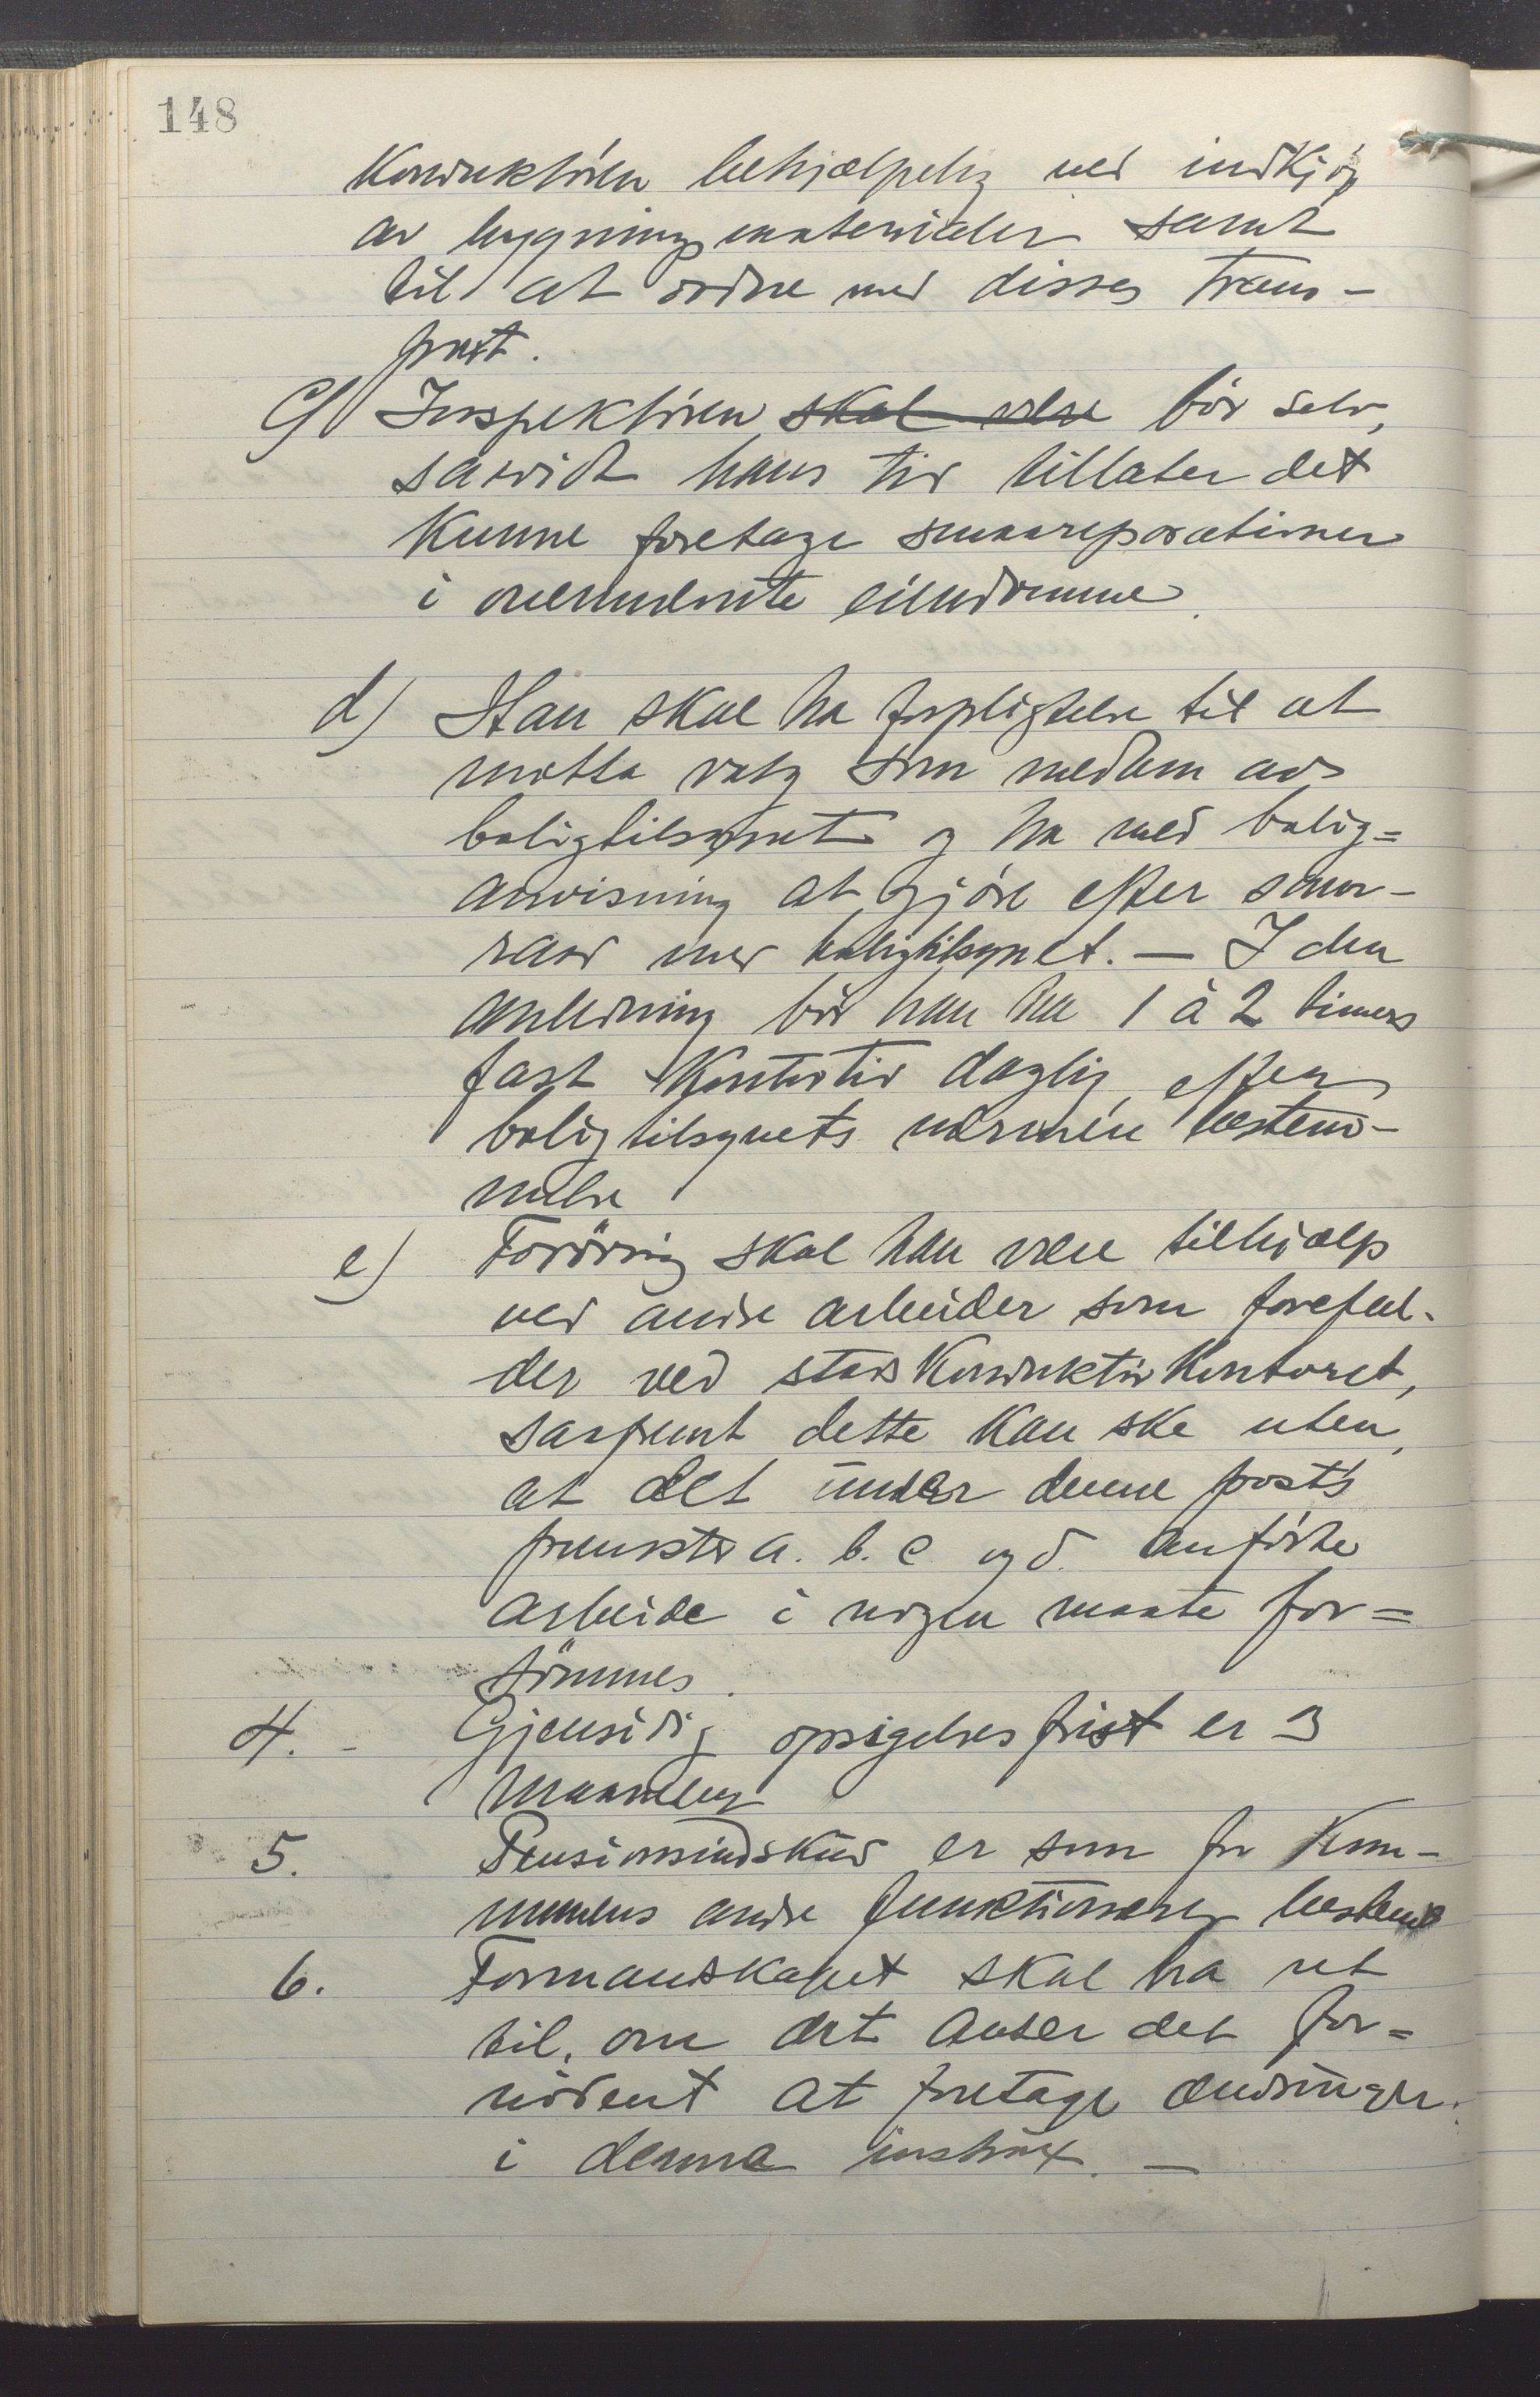 148
Konduktøren behjælpelig ved indkjøp
av bygningsmaterialer samt
til at ordne med disses trans-
port.
c) Inspektøren skal være bør selv,
såvidt hans tid tillater det
kunne foretage smaareparationer
i ovennævnte eiendomme.
d) Han skal ha forpligtelse til at
motta valg som medlem av
boligtilsynet og ha med bolig=
anvisning at gjøre efter sam-
raad med boligtilsynet. — I den
anledning bør han ha 1 à 2 timers
fast kontortid daglig, efter
boligtilsynets nærmere bestem-
melse
e) Forøvrig skal han være tilhjælp
ved andre arbeider som forefal-
der ved stadskonduktørkontoret,
saafremt dette kan ske uten,
at det under denne posts
punkter a. b. c og d. anførte
arbeide i nogen maate for=
sømmes.
4. - Gjensidig opsigelsesfrist er 3
maaneder
5. Pensionsindskud er som for kom-
munens andre funktionærer bestemt
6. Formandskapet skal ha ret
til, om det anser det for=
nødent at foretage ændringer
i denne instrux. —